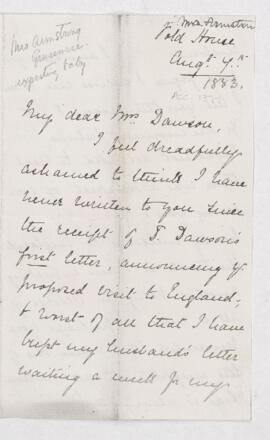 Mrs Armstrong
Mrs Armstrong
expecting baby
Told House
Augt 7th
1883.
My dear Mrs Dawson,
I feel dreadfully
ashamed to think I have
never written to you since
the receipt of J. Dawson's
first letter, announcing yr
proposed visit to England,
& worst of all that I have
kept my husband's letter
waiting a week for my